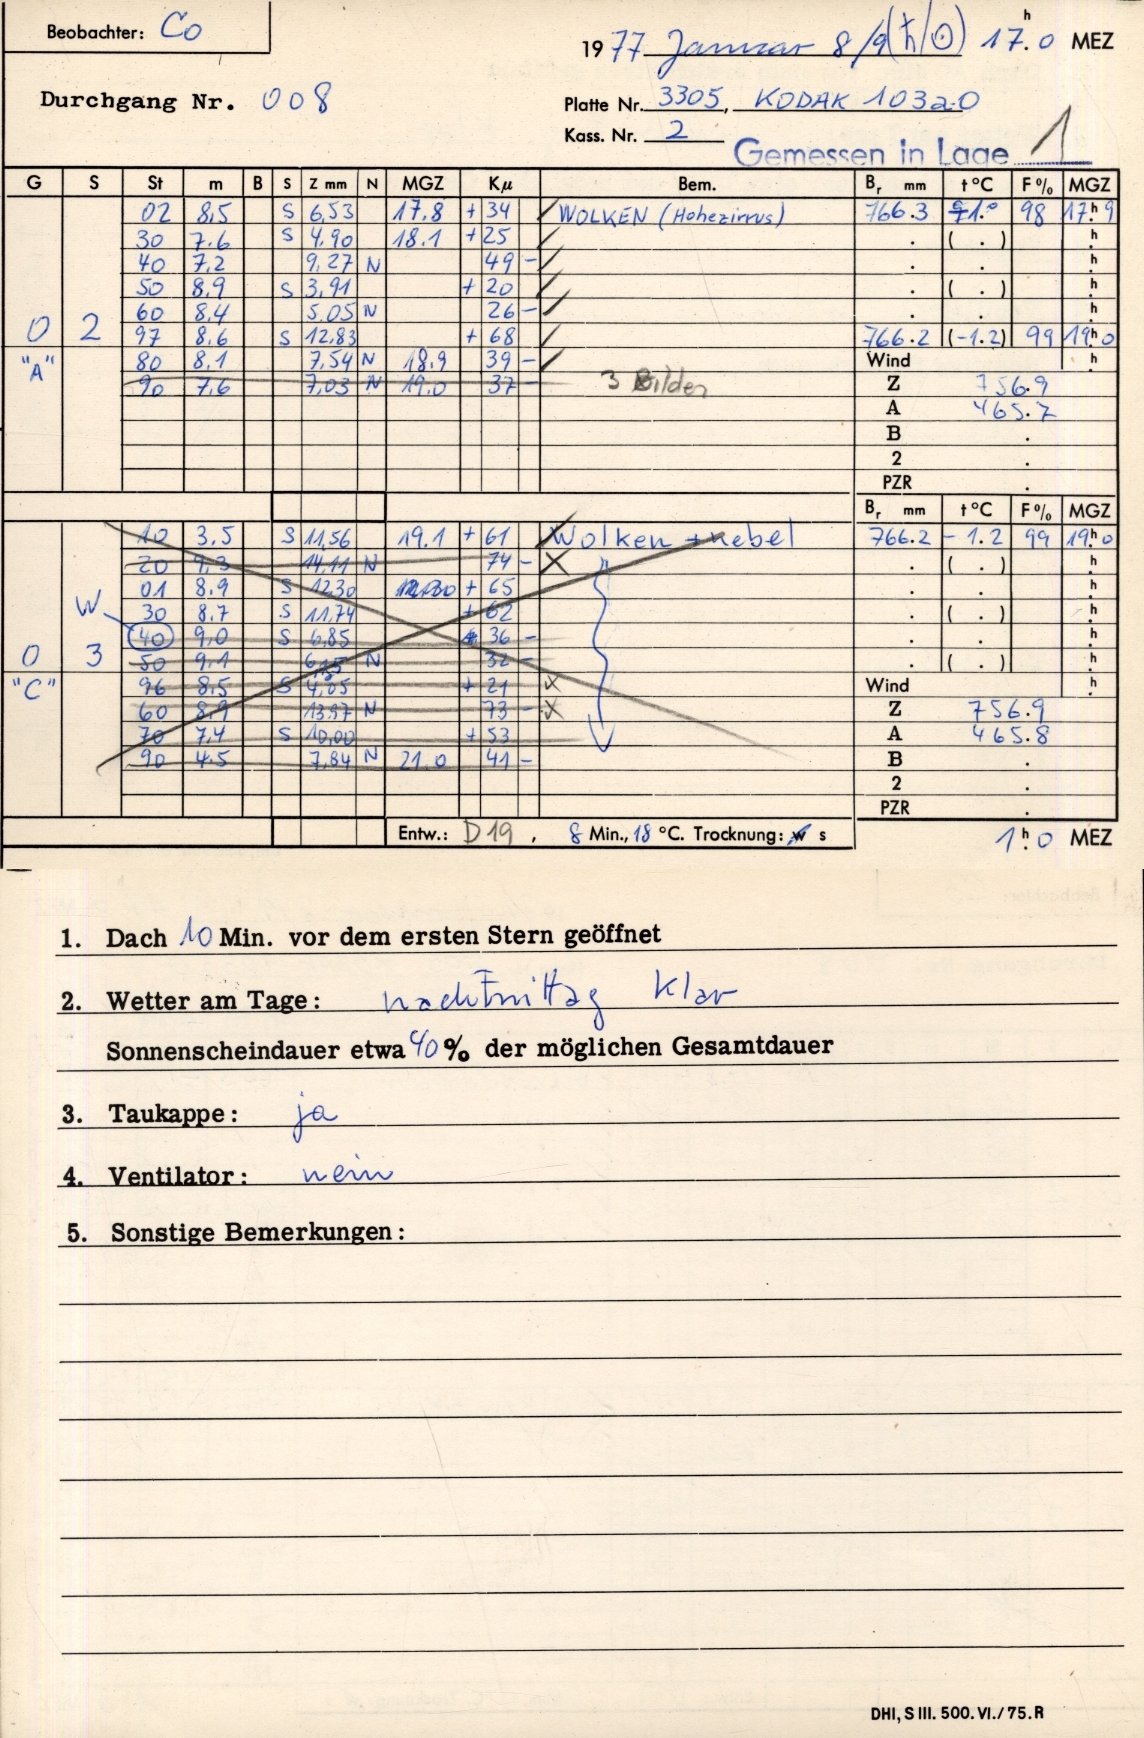 Beobachter: Co
1977 Januar 8/9 (ħ/⊙) 17ʰ.0 MEZ
Durchgang Nr. 008
Platte Nr. 3305, KODAK 103a-O
Kass. Nr. 2
Gemessen in Lage 1
G S St m B S Z mm N MGZ Kμ Bem. Bᵣ mm t °C F % MGZ
02 8,5 S 6,53 17,8 + 34 WOLKEN (Hohezirrus) 766.3 98 17ʰ.9
30 7.6 S 4,90 18.1 + 25 . ( . ) ʰ.
40 7,2 9,27 N 49 - . . ʰ.
50 8,9 S 3,91 + 20 . ( . ) ʰ.
60 8,4 5,05 N 26 - . . ʰ.
0 2 97 8,6 S 12,83 + 68 766.2 (-1.2) 99 19ʰ.0
"A" 80 8.1 7,54 N 18.9 39 - Wind ʰ.
90 7,6 7,03 N 19.0 37 - 3 Bilder Z 756.9
A 465.7
B .
2 .
PZR .
Bᵣ mm t °C F % MGZ
10 3.5 S 11,56 19.1 + 61 Wolken + nebel 766.2 - 1.2 99 19ʰ.0
20 9,3 14,11 N 74 - . ( . ) ʰ.
01 8.9 S 12,30 + 65 . . ʰ.
W 30 8.7 S 11,74 + 62 . ( . ) ʰ.
40 9,0 S 6,85 36 - . . ʰ.
0 3 50 9.1 N 32 - . ( . ) ʰ.
"C" 96 8,5 S 4,05 + 21 Wind ʰ.
60 8,9 13,97 N 73 - Z 756.9
70 7,4 S 10,00 + 53 A 465.8
90 4.5 7,84 N 21.0 41 - B .
2 .
PZR .
Entw.: D19, 8 Min., 18 °C. Trocknung: w s 1ʰ.0 MEZ
1. Dach 10 Min. vor dem ersten Stern geöffnet
2. Wetter am Tage: nachmittag klar
Sonnenscheindauer etwa 40 % der möglichen Gesamtdauer
3. Taukappe: ja
4. Ventilator: nein
5. Sonstige Bemerkungen:
DHI, S III. 500. VI./75. R